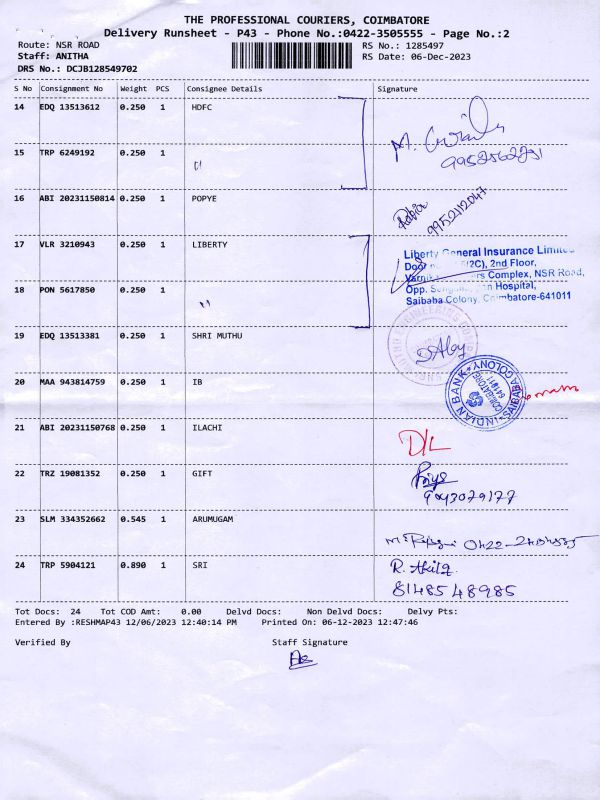 THE PROFESSIONAL COURIERS, COIMBATORE
Delivery Runsheet - P43 - Phone No.:0422-3505555 - Page No.:2
Route: NSR ROAD RS No.: 1285497
Staff: ANITHA RS Date: 06-Dec-2023
DRS No.: DCJB128549702
S No Consignment No Weight PCS Consignee Details Signature
14 EDQ 13513612 0.250 1 HDFC
9952562791
15 TRP 6249192 0.250 1 "
16 ABI 20231150814 0.250 1 POPYE
9952112047
17 VLR 3210943 0.250 1 LIBERTY
Liberty General Insurance Limited
2nd Floor,
Complex, NSR Road,
Opp. Hospital,
Saibaba Colony, Coimbatore-641011
18 PON 5617850 0.250 1 "
19 EDQ 13513381 0.250 1 SHRI MUTHU
20 MAA 943814759 0.250 1 IB
INDIAN BANK SAIBABA COLONY
COIMBATORE
641011
21 ABI 20231150768 0.250 1 ILACHI
D/L
22 TRZ 19081352 0.250 1 GIFT
Priya
9043079177
23 SLM 334352662 0.545 1 ARUMUGAM
24 TRP 5904121 0.890 1 SRI
R. Akila
8148548985
Tot Docs: 24 Tot COD Amt: 0.00 Delvd Docs: Non Delvd Docs: Delvy Pts:
Entered By :RESHMAP43 12/06/2023 12:40:14 PM Printed On: 06-12-2023 12:47:46
Verified By Staff Signature